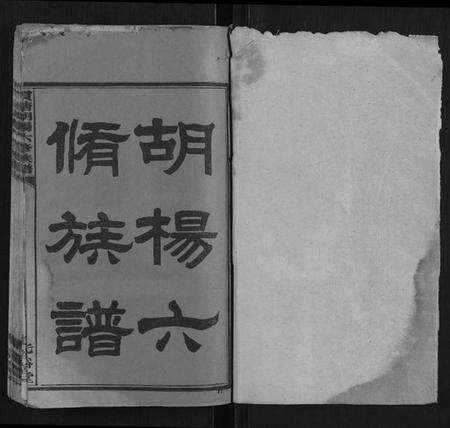 胡楊六
脩族譜